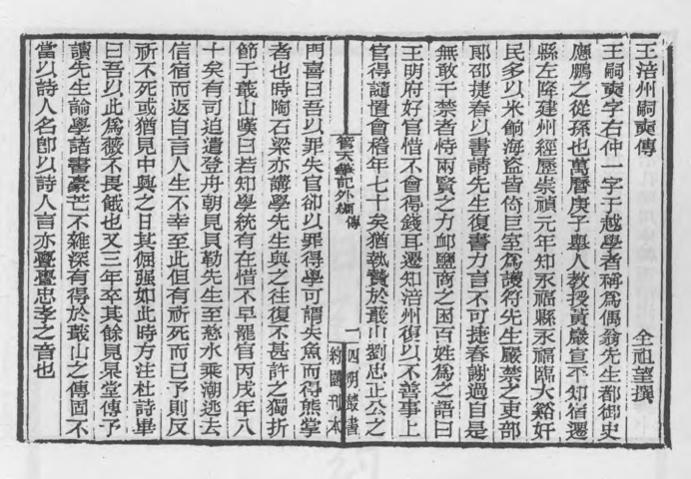 王涪州嗣奭傳
全祖望撰
王嗣奭字右仲一字于越學者稱爲偶翁先生都御史
應鵬之從孫也萬曆庚子舉人教授黃巖宣平知宿遷
縣左降建州經歷崇禎元年知永福縣永福臨大谿奸
民多以米餉海盜皆倚巨室爲護符先生嚴禁之吏部
郎邵捷春以書請先生復書力言不可捷春謝過自是
無敢干禁者恃兩賢之力卹鹽商之困百姓爲之語曰
王明府好官惜不會得錢耳遷知涪州復以不善事上
官得譴置會稽年七十矣猶執贄於蕺山劉忠正公之
管天筆記外編
傳
一
四明叢書
約園刊本
門喜曰吾以罪失官卻以罪得學可謂失魚而得熊掌
者也時陶石梁亦講學先生與之往復不甚許之獨折
節于蕺山嘆曰若知學統有在惜不早罷官丙戌年八
十矣有司迫遣登舟朝見貝勒先生至慈水乘潮逃去
信宿而返自言人生不幸至此但有祈死而已予則反
祈不死或猶見中興之日其倔强如此時方注杜詩畢
曰吾以此爲薇不長餓也又三年卒其餘見杲堂傳予
讀先生論學諸書豪芒不雜深有得於蕺山之傳固不
當以詩人名卽以詩人言亦亹亹忠孝之音也